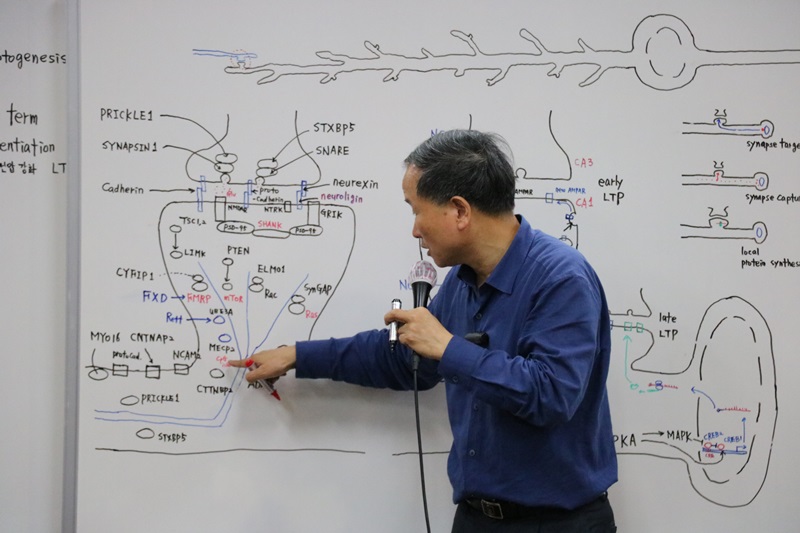 togenesis
term
entiation
LT
PRICKLE1
SYNAPSIN1
Cadherin
STXBP5
SNARE
neurexin
neuroligin
Glu
proto
-Cadherin
NMDAR
NTRK
GRIK
PSD-95
SHANK
PSD-95
TSC1,2
LIMK
PTEN
mTOR
CYFIP1
FXD
FMRP
ELMO1
Rac
SynGAP
Ras
Rett
UBE3A
MECP2
MYO16
CNTNAP2
protocad.
NCAM2
CTTNBP2
PRICKLE1
STXBP5
CA3
AMPAR
new AMPAR
CA1
early
LTP
late
LTP
PKA
MAPK
CREB2
CREB1
synapse targe
synapse captur
local
protein synthesi